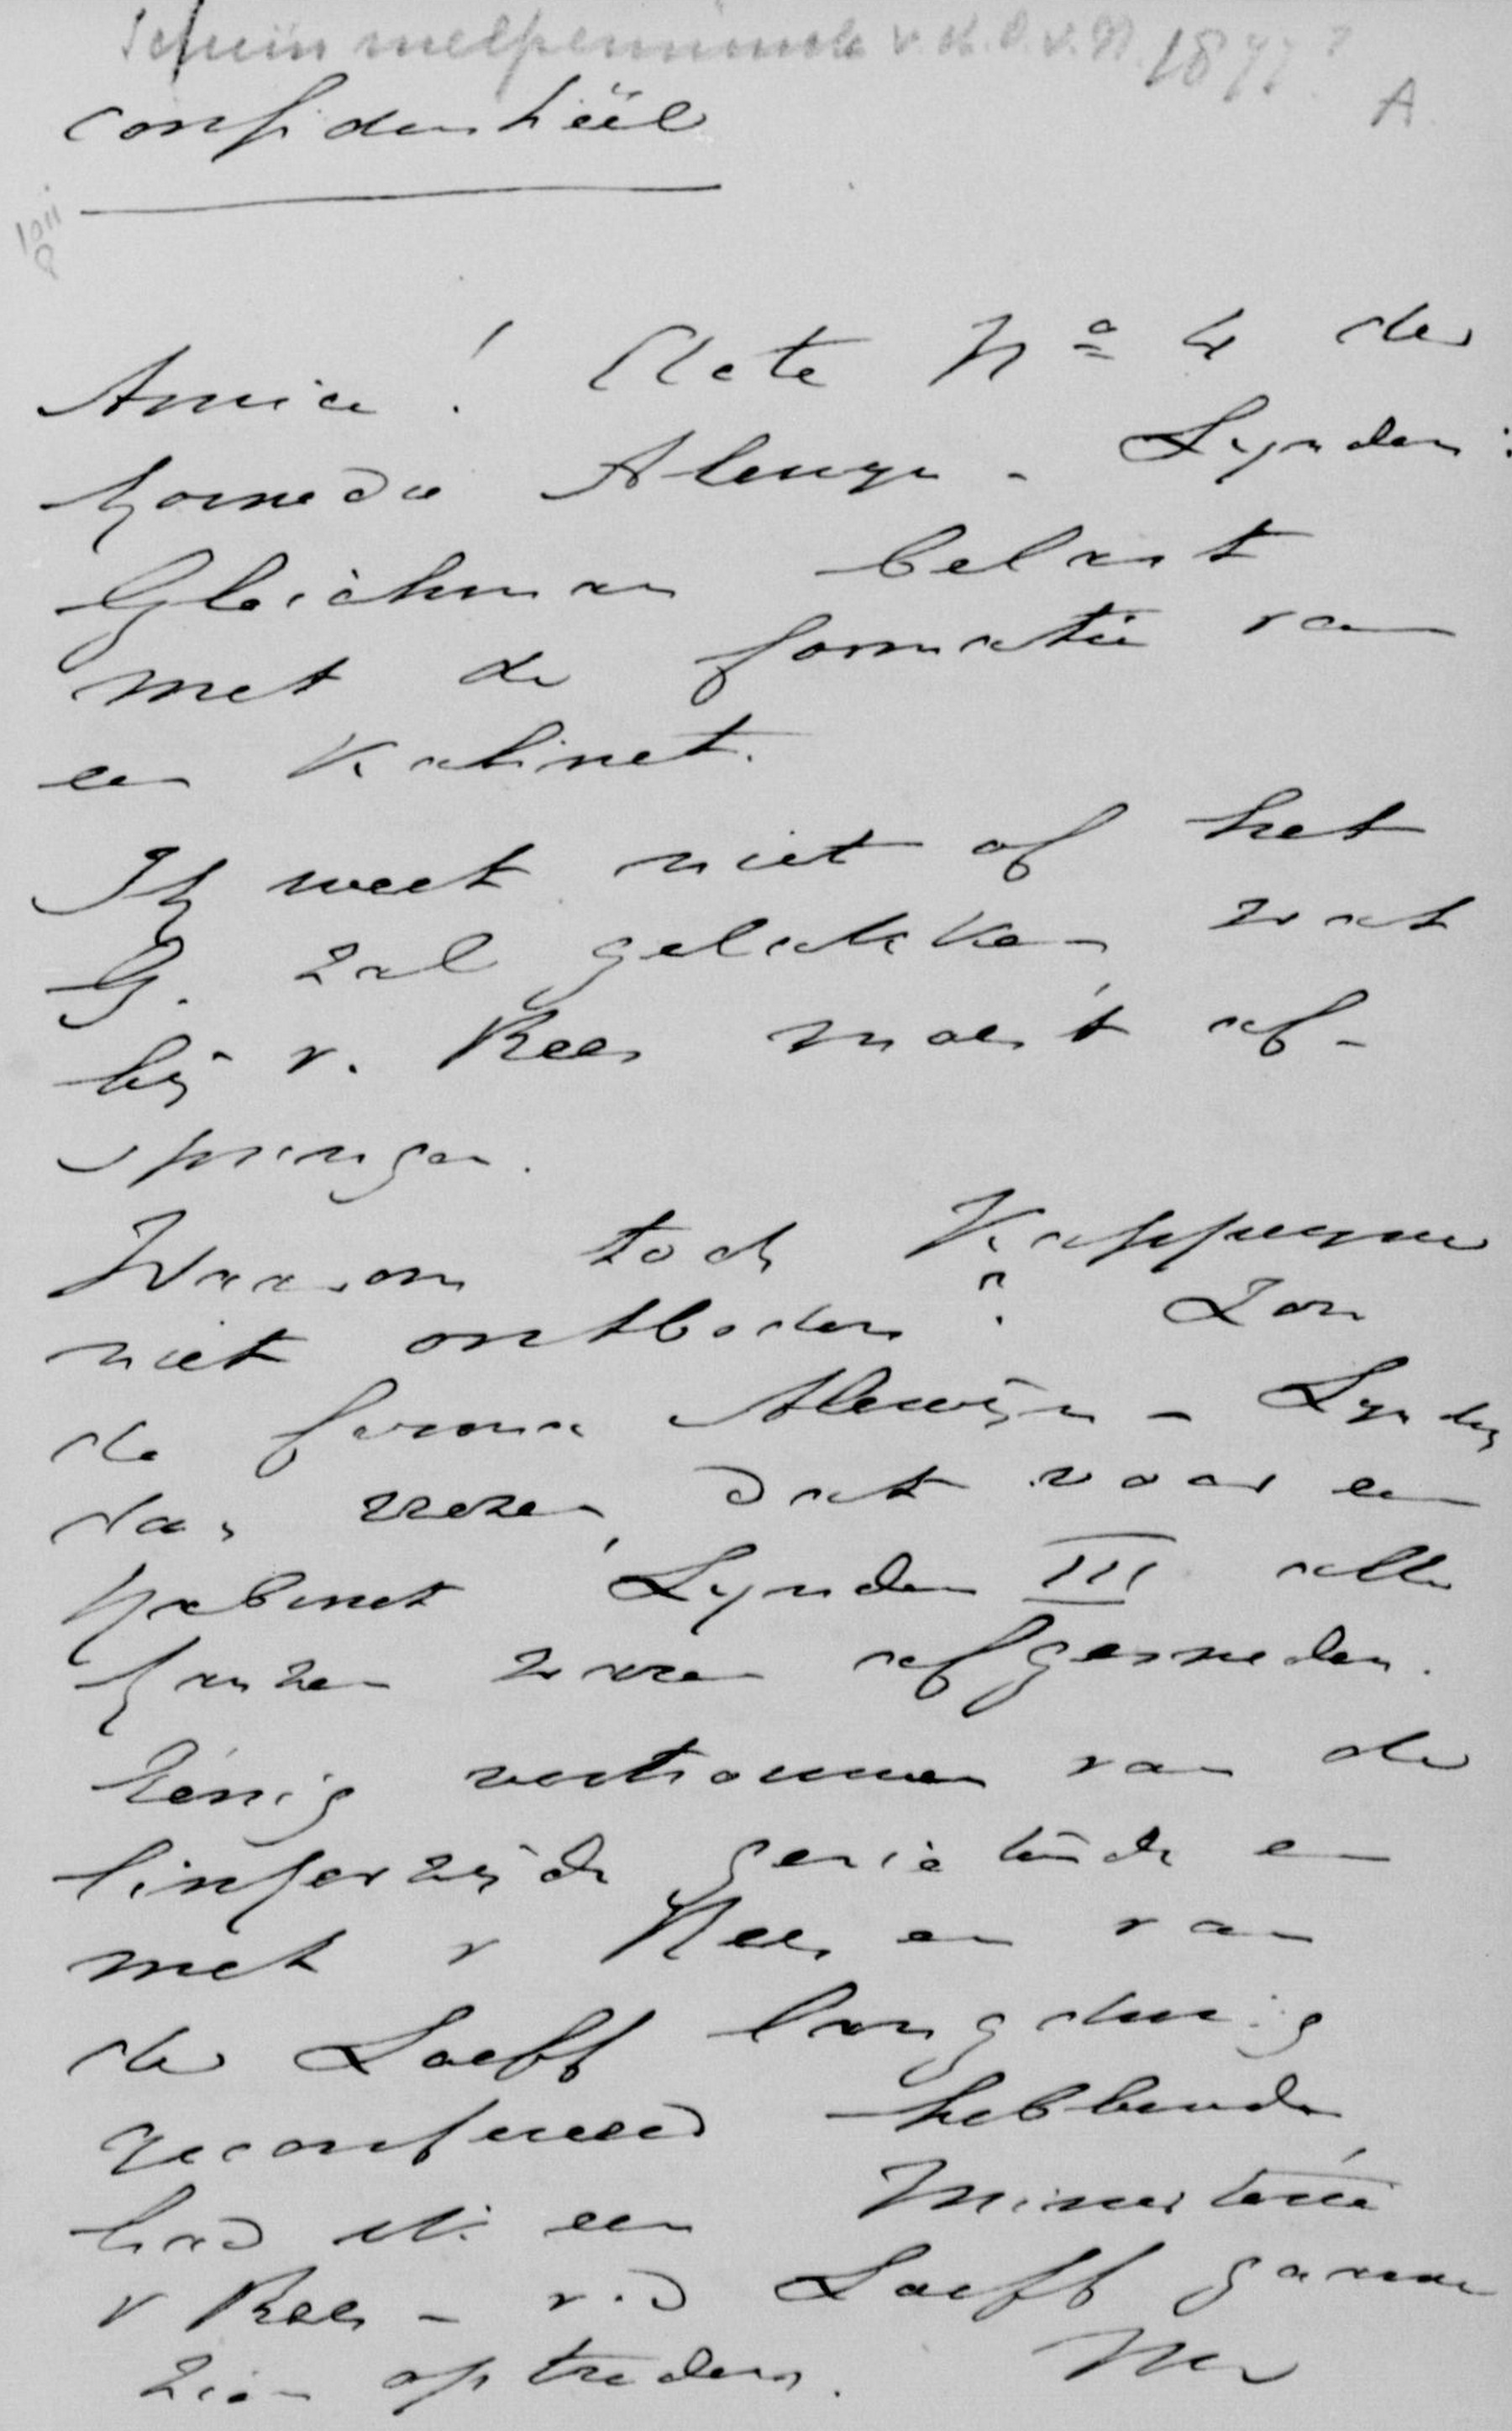 Schimmelpenninck v. d. O. v. N. 18
A
Confidentiëel
Amice! Acte Nº 4 der
komedie Alewyn - Lynden:
Gleichman belast
met de formatie van
een Kabinet.
Ik weet niet of het
G. zal gelukken, wat
bij v. Rees moest af-
springen.
Waarom toch Kappeyne
niet ontboden? Zou
de firma Alewijn - Lynden
dan vrezen, dat voor een
Kabinet Lynden III alle
kansen waren afgesneden.
Eenig vertrouwen van de
linkerzijde genietende en
met v Rees en van
der Loeff langdurig
geconfereerd hebbende,
had ik een Ministerie
v Rees - v.d Loeff gaarne
zien optreden. Nu